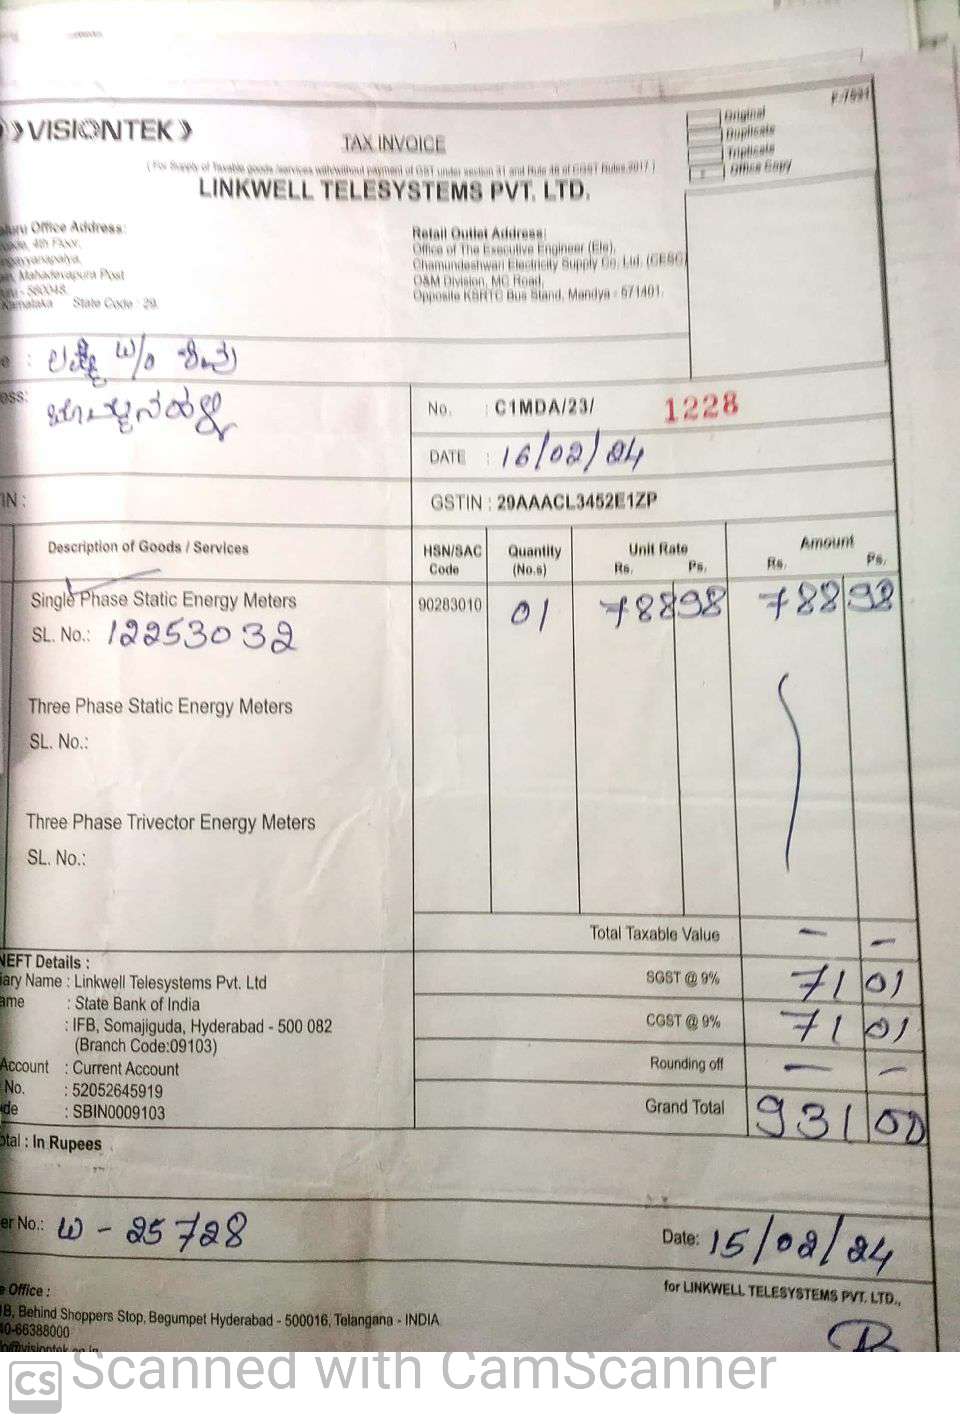 F-7991
❯VISIONTEK❯
TAX INVOICE
Original
Duplicate
Triplicate
Office Copy
( For Supply of Taxable goods /services with/without payment of GST under section 31 and Rule 46 of CGST Rules 2017 )
LINKWELL TELESYSTEMS PVT. LTD.
Office Address:
4th Floor,
Mahadevapura Post
- 560048.
State Code : 29.
Retail Outlet Address:
Office of The Executive Engineer (Ele),
Chamundeshwari Electricity Supply Co. Ltd. (CESC)
O&M Division, MC Road,
Opposite KSRTC Bus Stand, Mandya - 571401.
W/o
No. : C1MDA/23/ 1228
DATE : 16/02/24
GSTIN : 29AAACL3452E1ZP
Description of Goods / Services
HSN/SAC Code
Quantity (No.s)
Unit Rate Rs. Ps.
Amount Rs. Ps.
Single Phase Static Energy Meters 90283010 01 788 98 788 98
SL. No.: 12253032
Three Phase Static Energy Meters
SL. No.:
Three Phase Trivector Energy Meters
SL. No.:
Total Taxable Value — —
SGST @ 9% 71 01
CGST @ 9% 71 01
Rounding off — —
Grand Total 931 00
NEFT Details :
iary Name : Linkwell Telesystems Pvt. Ltd
ame : State Bank of India
: IFB, Somajiguda, Hyderabad - 500 082
(Branch Code:09103)
Account : Current Account
No. : 52052645919
de : SBIN0009103
otal : In Rupees
er No.: W - 25728
Date: 15/02/24
for LINKWELL TELESYSTEMS PVT. LTD.,
e Office :
B, Behind Shoppers Stop, Begumpet Hyderabad - 500016, Telangana - INDIA
40-66388000
CS Scanned with CamScanner